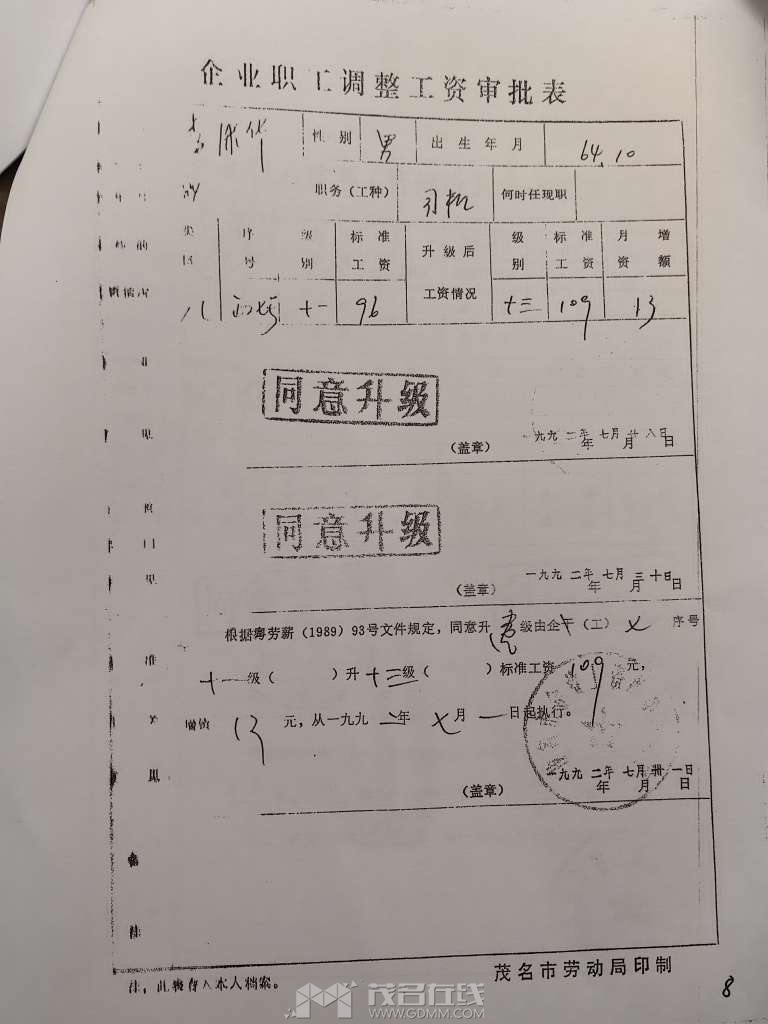 企业职工调整工资审批表
性别 男 出生年月 64.10
职务(工种) 司机 何时任现职
类 序 级 标准 升级后 级 标准 月增
区 号 别 工资 工资情况 别 工资 资额
八 十一 96 十三 109 13
业
同意升级
见
(盖章) 一九九二年七月廿八日
年 月 日
同意升级
见
(盖章) 一九九二年七月三十日
年 月 日
根据粤劳薪(1989)93号文件规定,同意升 级由企干(工) 七 序号
十一级( )升十三级( )标准工资 109 元,
准
增资 13 元,从一九九二年七月一日起执行。
见
一九九二年七月卅一日
(盖章) 年 月 日
备
注
注:此表存入本人档案。
茂名市劳动局印制
8
茂名在线
WWW.GDMM.COM